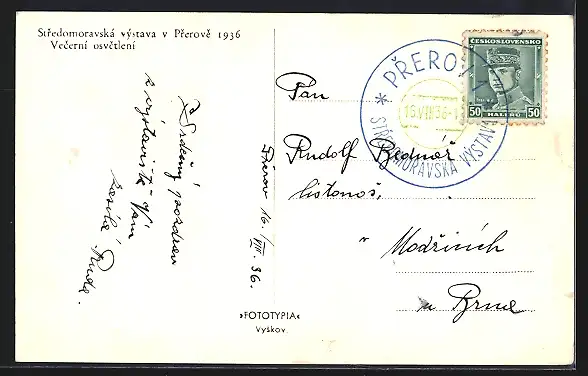 Středomoravská výstava v Přerově 1936
Večerní osvětlení
Srdečný pozdrav
z výstaviště Vám
zasílá Ruda.
Přerov 16./VIII. 36.
»FOTOTYPIA«
Vyškov
* PŘEROV
16.VIII.36-1
STŘEDOMORAVSKÁ VÝSTAVA
ČESKOSLOVENSKO
50 HALÉŘŮ 50
Pan
Rudolf Bednář
listonoš,
v Modřicích
u Brna